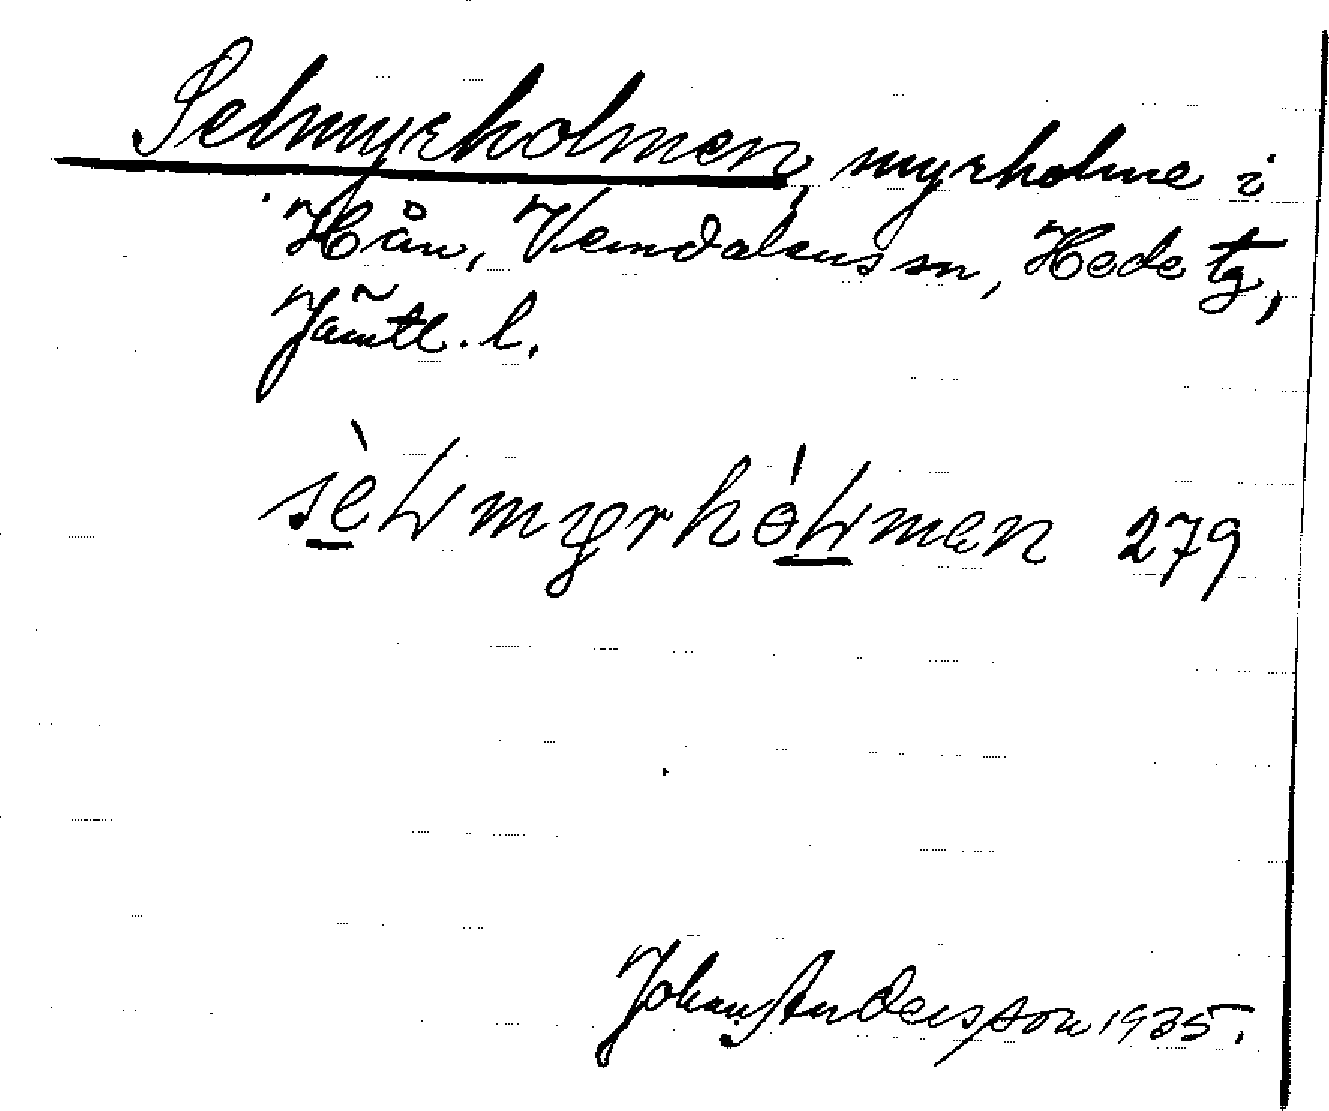 Selmyrholmen, myrholme i
Hån, Vemdalens sn, Hede tg,
Jämtl. l.
279
Johan Andersson 1935.